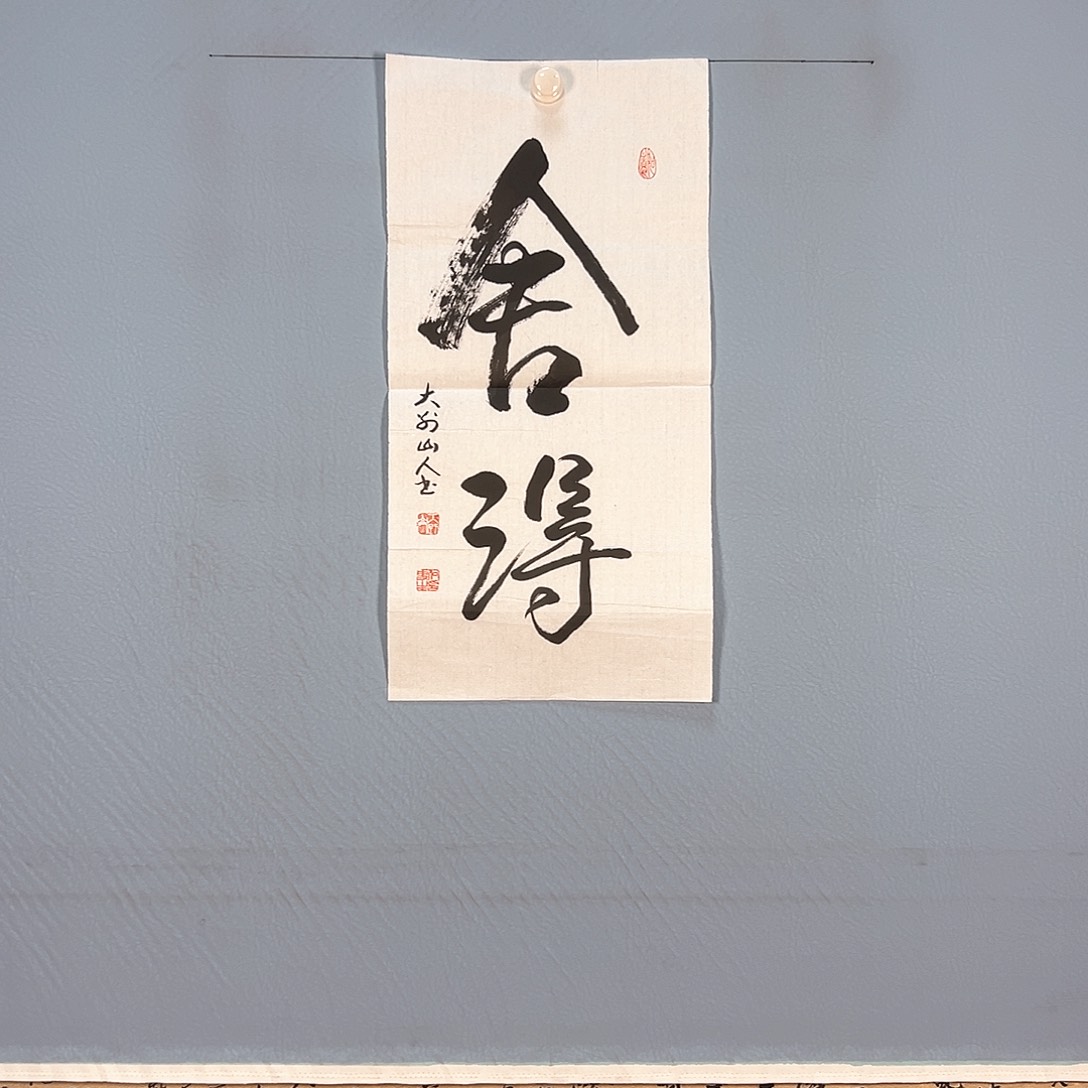 舍得
大别山人书